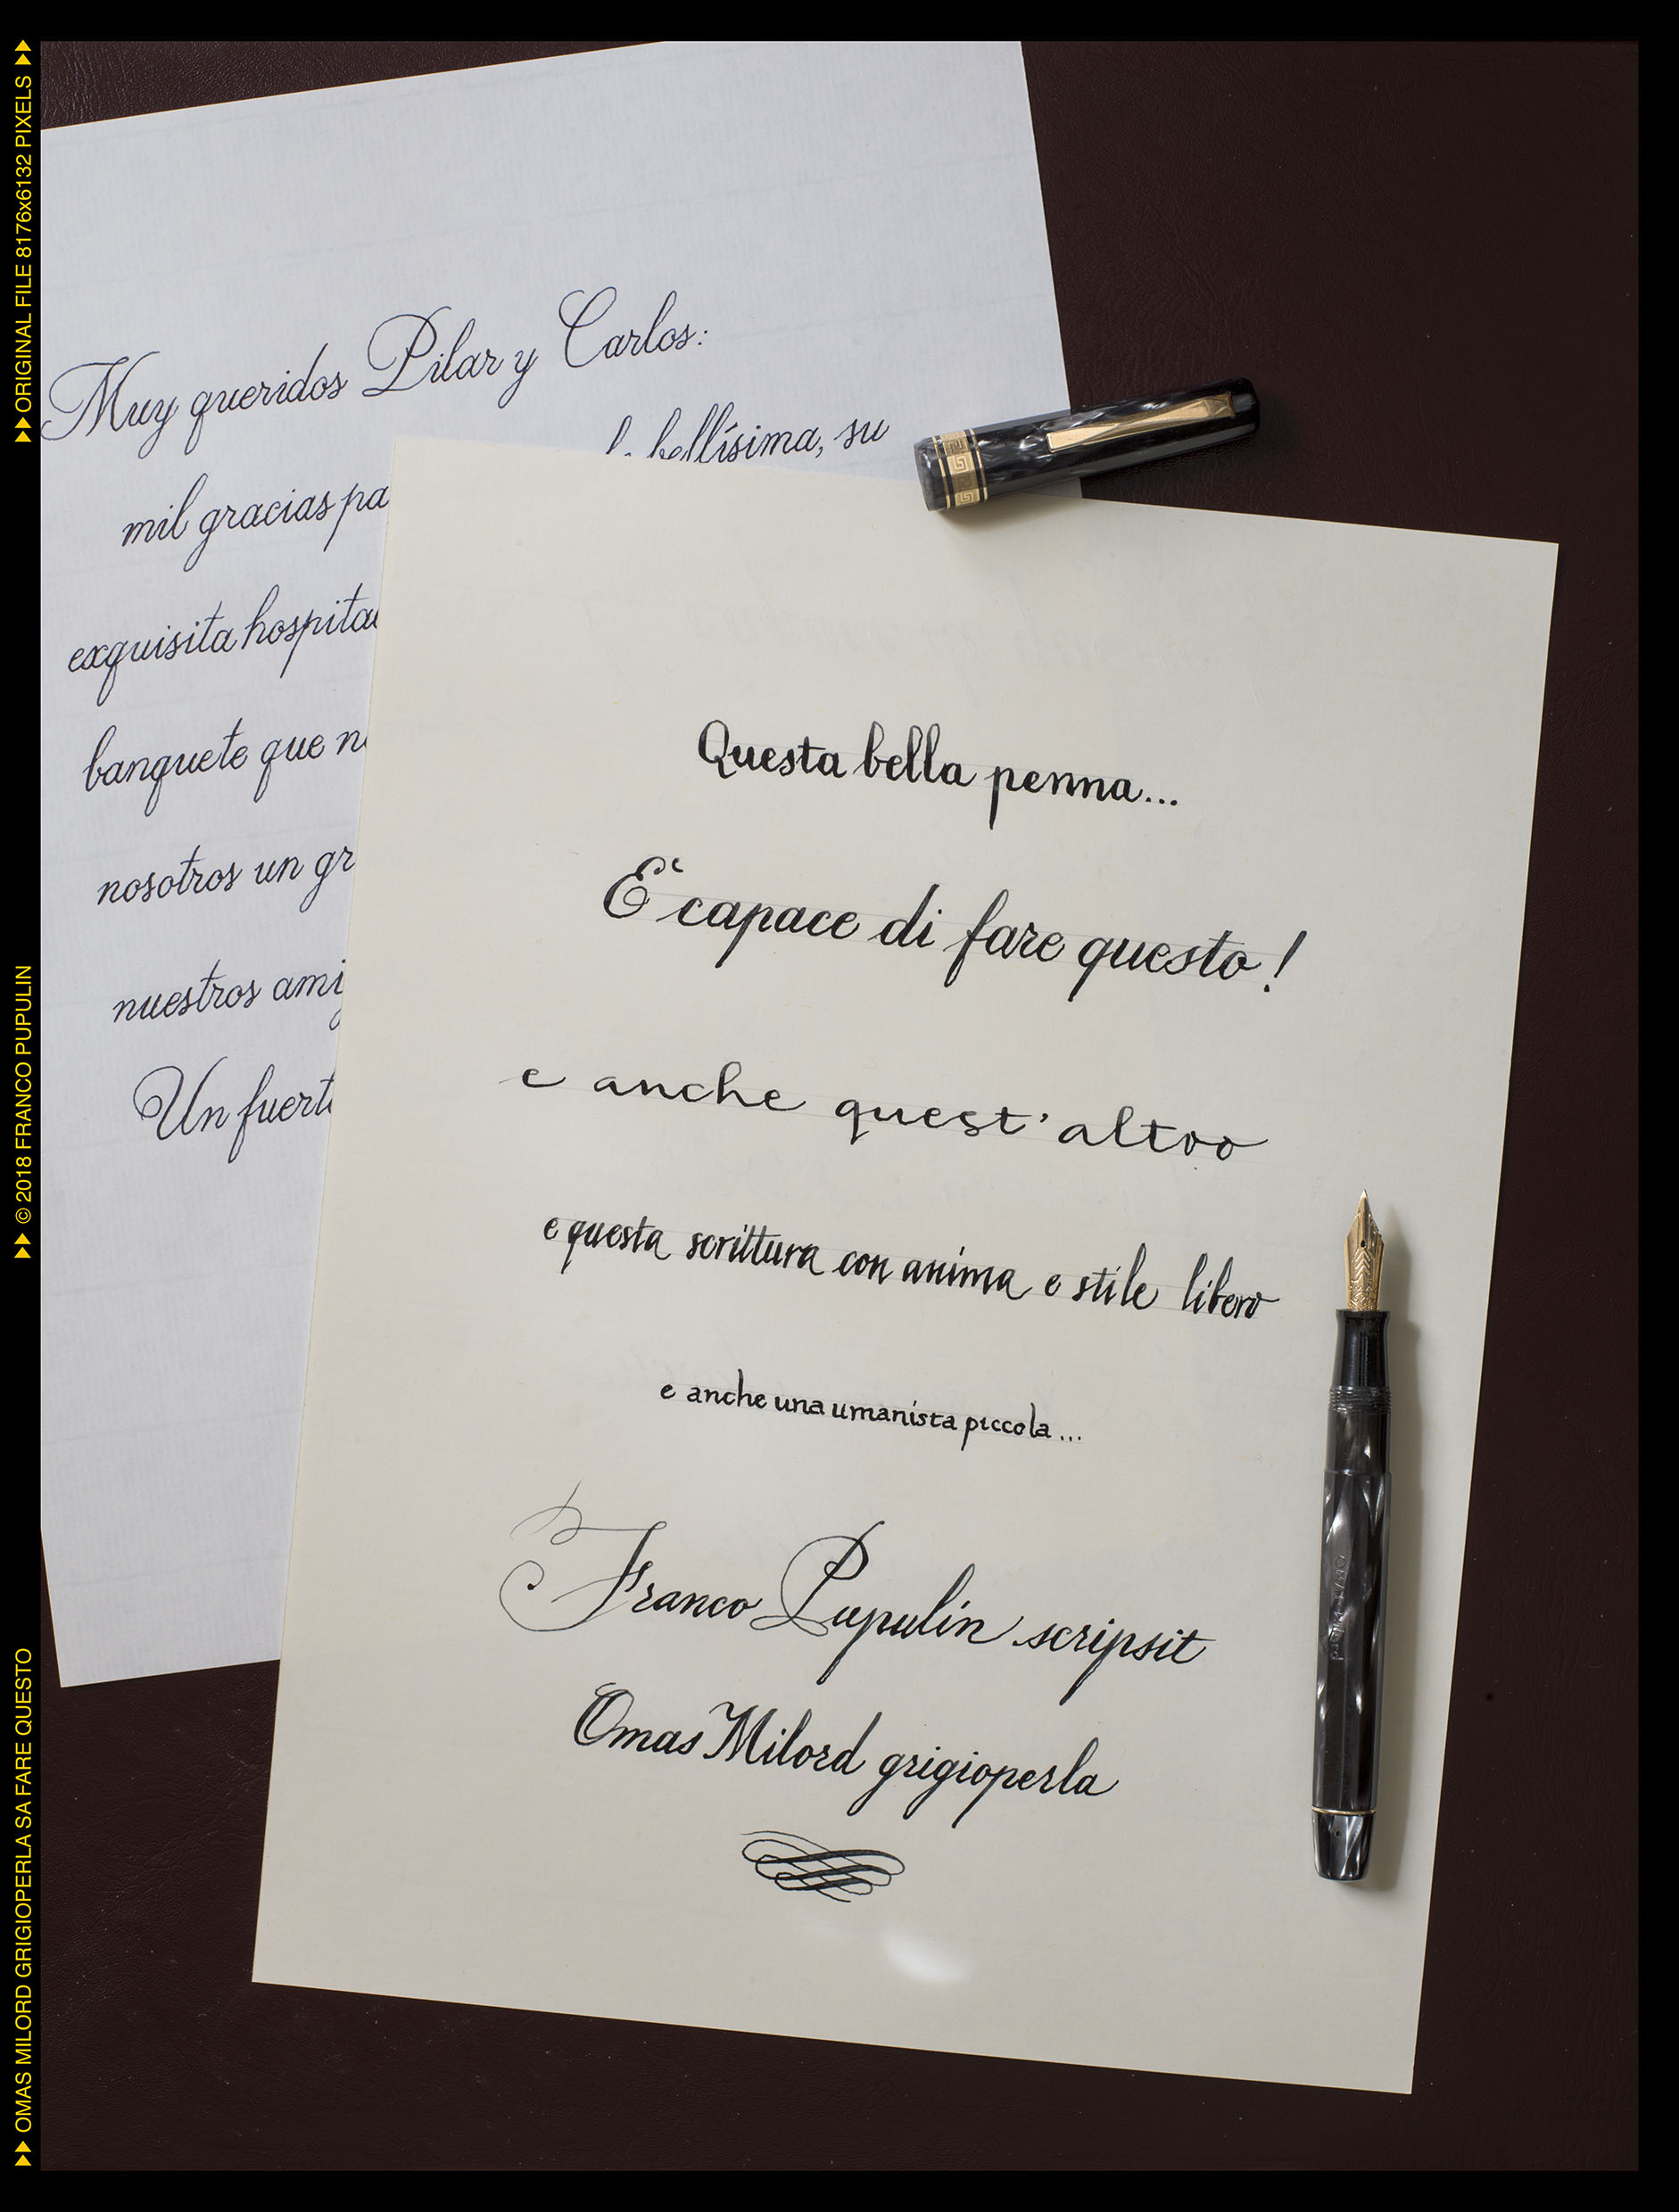 ▶▶ORIGINAL FILE 8176x6132 PIXELS ▶▶
▶▶ © 2018 FRANCO PUPULIN
▶▶ OMAS MILORD GRIGIOPERLA SA FARE QUESTO
Muy queridos Pilar y Carlos:
bellísima, su
mil gracias pa
exquisita hospita
banquete que n
nosotros un gr
nuestros ami
Un fuert
Questa bella penna...
E' capace di fare questo!
e anche quest'altro
e questa scrittura con anima e stile libero
e anche una umanista piccola...
Franco Pupulin scripsit
Omas Milord grigioperla